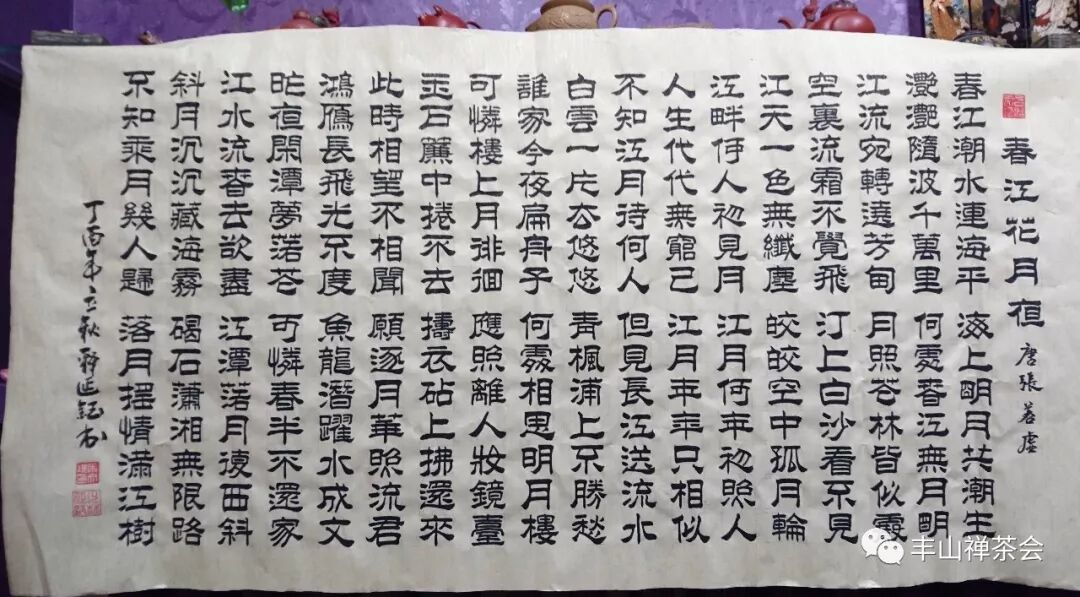 春江花月夜 唐張若虛
春江潮水連海平 海上明月共潮生
灩灩隨波千萬里 何處春江無月明
江流宛轉遶芳甸 月照花林皆似霰
空裏流霜不覺飛 汀上白沙看不見
江天一色無纖塵 皎皎空中孤月輪
江畔何人初見月 江月何年初照人
人生代代無窮已 江月年年只相似
不知江月待何人 但見長江送流水
白雲一片去悠悠 青楓浦上不勝愁
誰家今夜扁舟子 何處相思明月樓
可憐樓上月徘徊 應照離人妝鏡臺
玉石簾中捲不去 擣衣砧上拂還來
此時相望不相聞 願逐月華照流君
鴻雁長飛光不度 魚龍潛躍水成文
昨夜閑潭夢落花 可憐春半不還家
江水流春去欲盡 江潭落月復西斜
斜月沉沉藏海霧 碣石瀟湘無限路
不知乘月幾人歸 落月搖情滿江樹
丁酉年立秋
丰山禅茶会